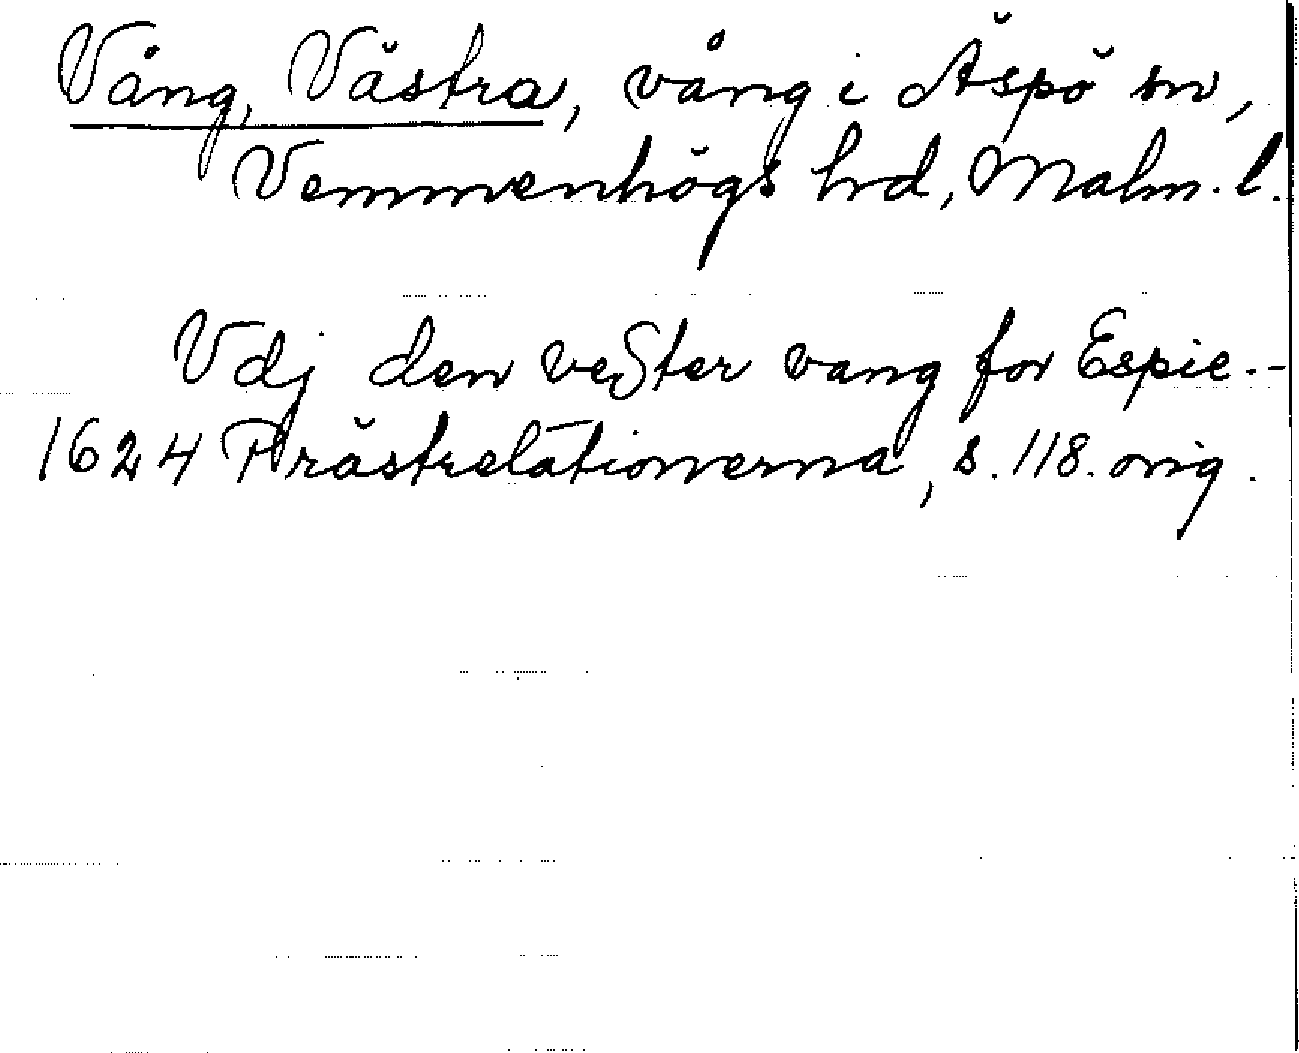 Vång, Västra, vång i Äspö sn,
Vemmenhögs hrd, Malm. l.
Vdj den vester vang for Espie.-
1624 Prästrelationerna, s. 118. orig.